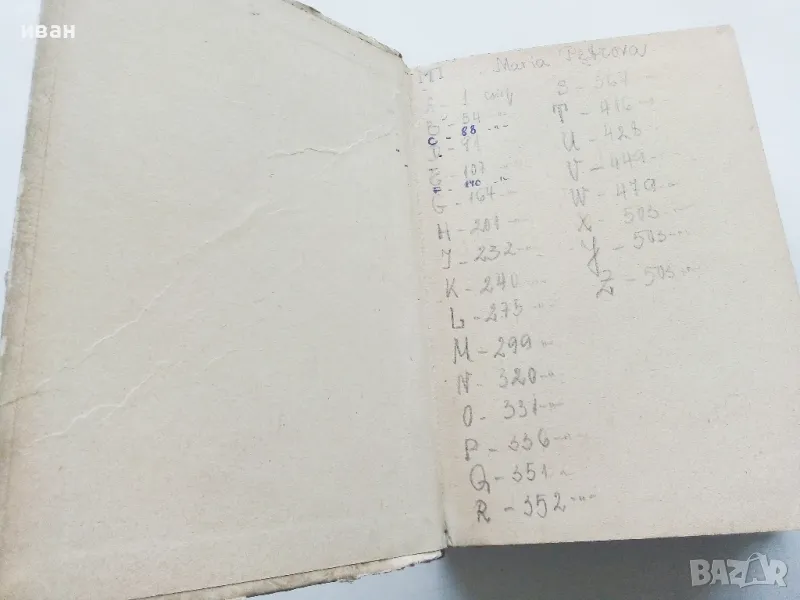 иван
Maria
A - 1
B - 54 -"-
C - 88 -"-
D - 91
E - 137 -"-
F - 140 -"-
G - 164 -"-
H - 201 -"-
J - 232 -"-
K - 240 -"-
L - 275 -"-
M - 299 -"-
N - 320 -"-
O - 331 -"-
P - 336 -"-
Q - 351 -"-
R - 352 -"-
S - 367 -"-
T - 416 -"-
U - 428 -"-
V - 449 -"-
W - 479 -"-
X - 503 -"-
Y - 503 -"-
Z - 503 -"-
BAZAR